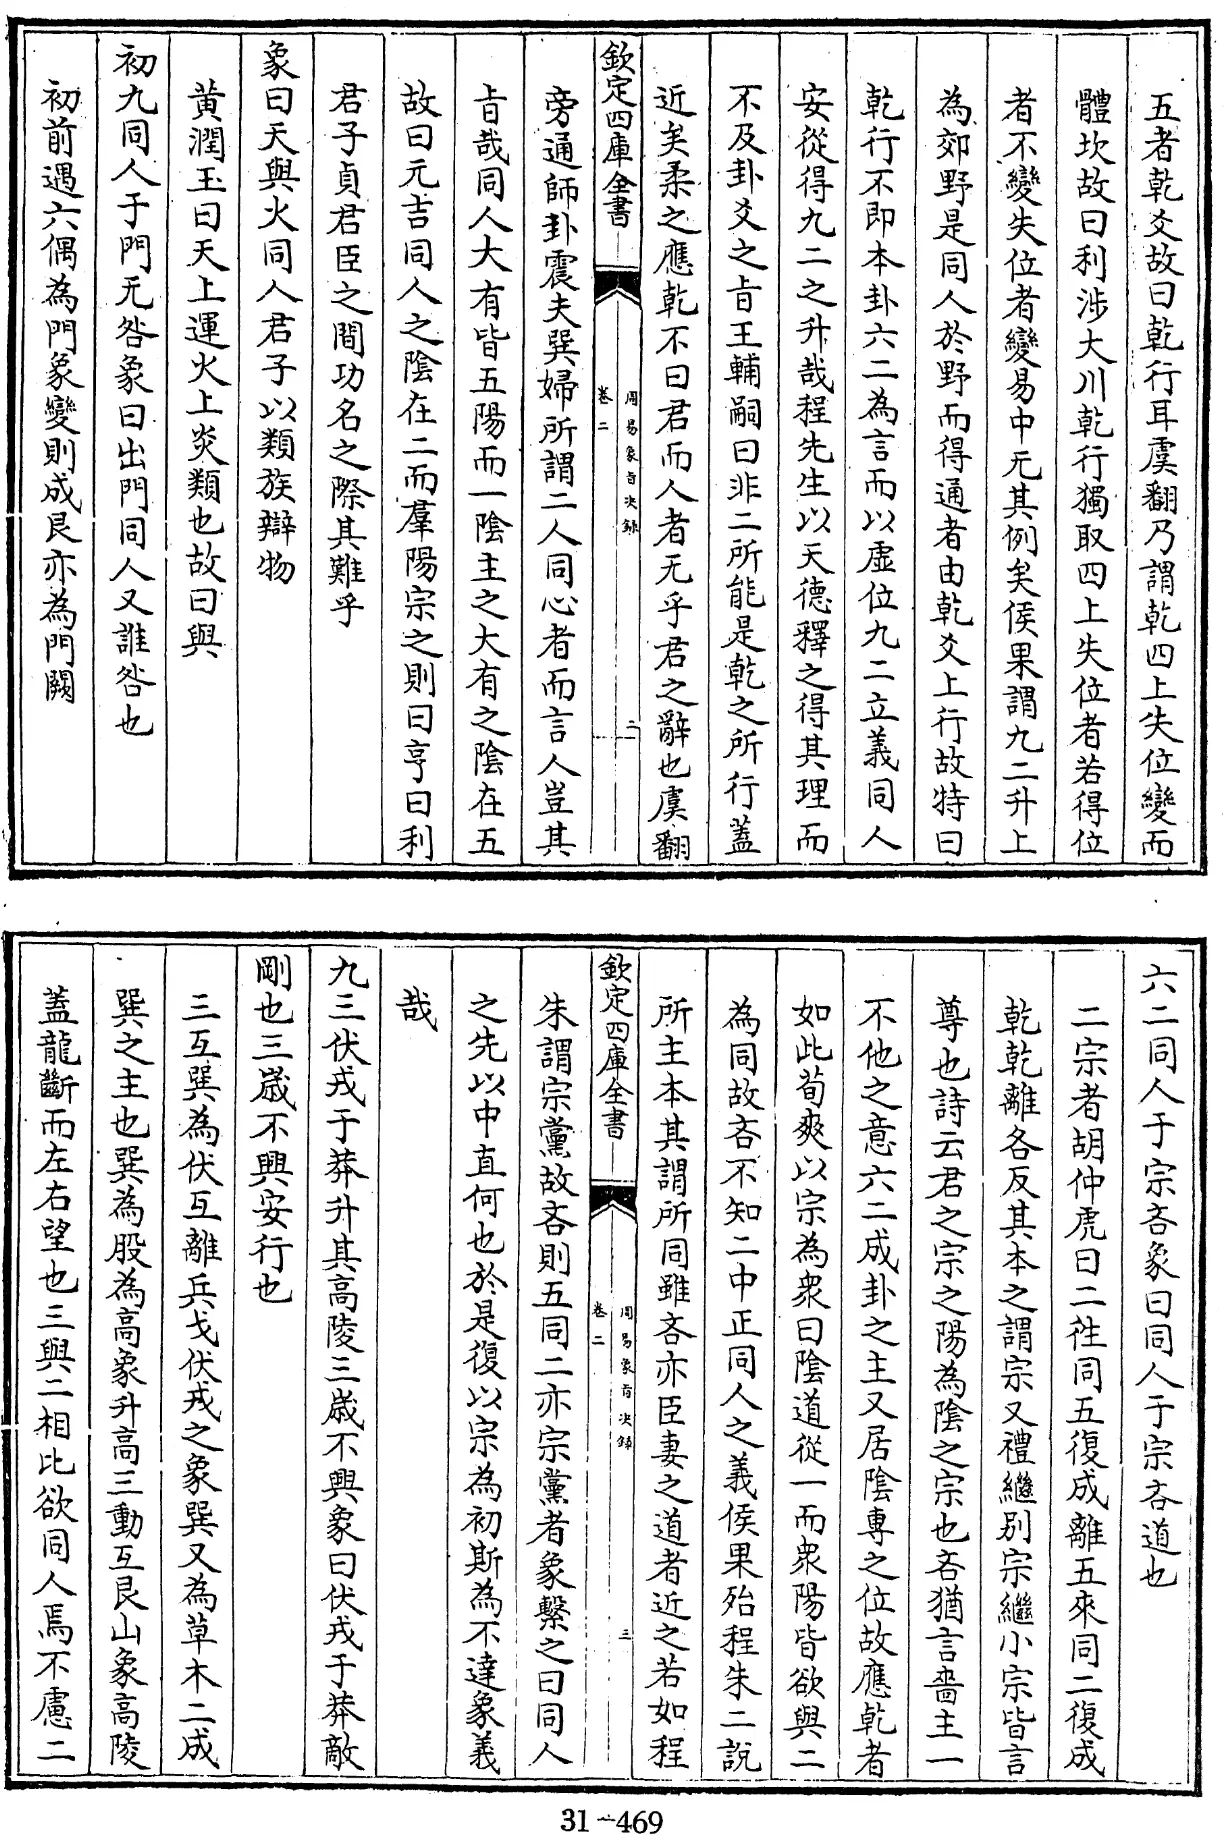 五者乾爻故曰乾行耳虞翻乃謂乾四上失位變而
體坎故曰利涉大川乾行獨取四上失位者若得位
者不變失位者變易中无其例矣侯果謂九二升上
為郊野是同人於野而得通者由乾爻上行故特曰
乾行不即本卦六二為言而以虛位九二立義同人
安從得九二之升哉程先生以天德釋之得其理而
不及卦爻之㫖王輔嗣曰非二所能是乾之所行蓋
近矣柔之應乾不曰君而人者无乎君之辭也虞翻
欽定四庫全書
周易象㫖決錄
卷二
二
旁通師卦震夫巽婦所謂二人同心者而言人豈其
㫖哉同人大有皆五陽而一陰主之大有之陰在五
故曰元吉同人之陰在二而羣陽宗之則曰亨曰利
君子貞君臣之間功名之際其難乎
象曰天與火同人君子以類族辯物
黄潤玉曰天上運火上炎類也故曰與
初九同人于門无咎象曰出門同人又誰咎也
初前遇六偶為門象變則成艮亦為門闕
六二同人于宗吝象曰同人于宗吝道也
二宗者胡仲虎曰二徃同五復成離五來同二復成
乾乾離各反其本之謂宗又禮繼别宗繼小宗皆言
尊也詩云君之宗之陽為陰之宗也吝猶言嗇主一
不他之意六二成卦之主又居陰專之位故應乾者
如此荀爽以宗為衆曰陰道從一而衆陽皆欲與二
為同故吝不知二中正同人之義侯果殆程朱二說
所主本其謂所同雖吝亦臣妻之道者近之若如程
欽定四庫全書
周易象㫖決錄
卷二
三
朱謂宗黨故吝則五同二亦宗黨者象繫之曰同人
之先以中直何也於是復以宗為初斯為不達象義
哉
九三伏戎于莽升其高陵三嵗不興象曰伏戎于莽敵
剛也三嵗不興安行也
三互巽為伏互離兵戈伏戎之象巽又為草木二成
巽之主也巽為股為高象升高三動互艮山象高陵
蓋龍斷而左右望也三與二相比欲同人焉不慮二
31-469